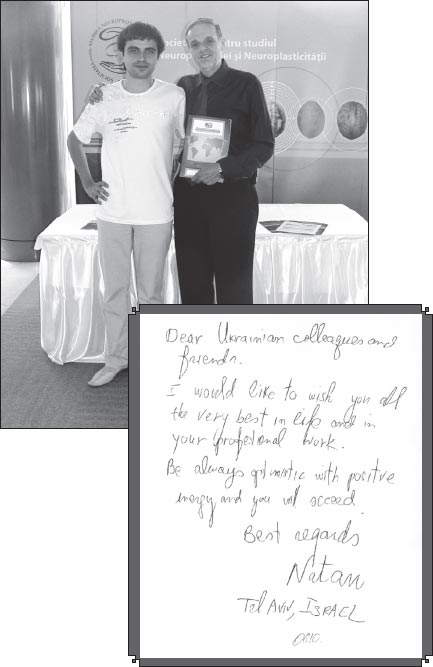 tru studiul
ei și Neuroplasticității
Dear Ukrainian colleagues and
friends.
I would like to wish you all
the very best in life and in
your profesional work.
Be always optimistic with positive
energy and you will
Best regards
Natan
Tel AVIV, ISRAEL